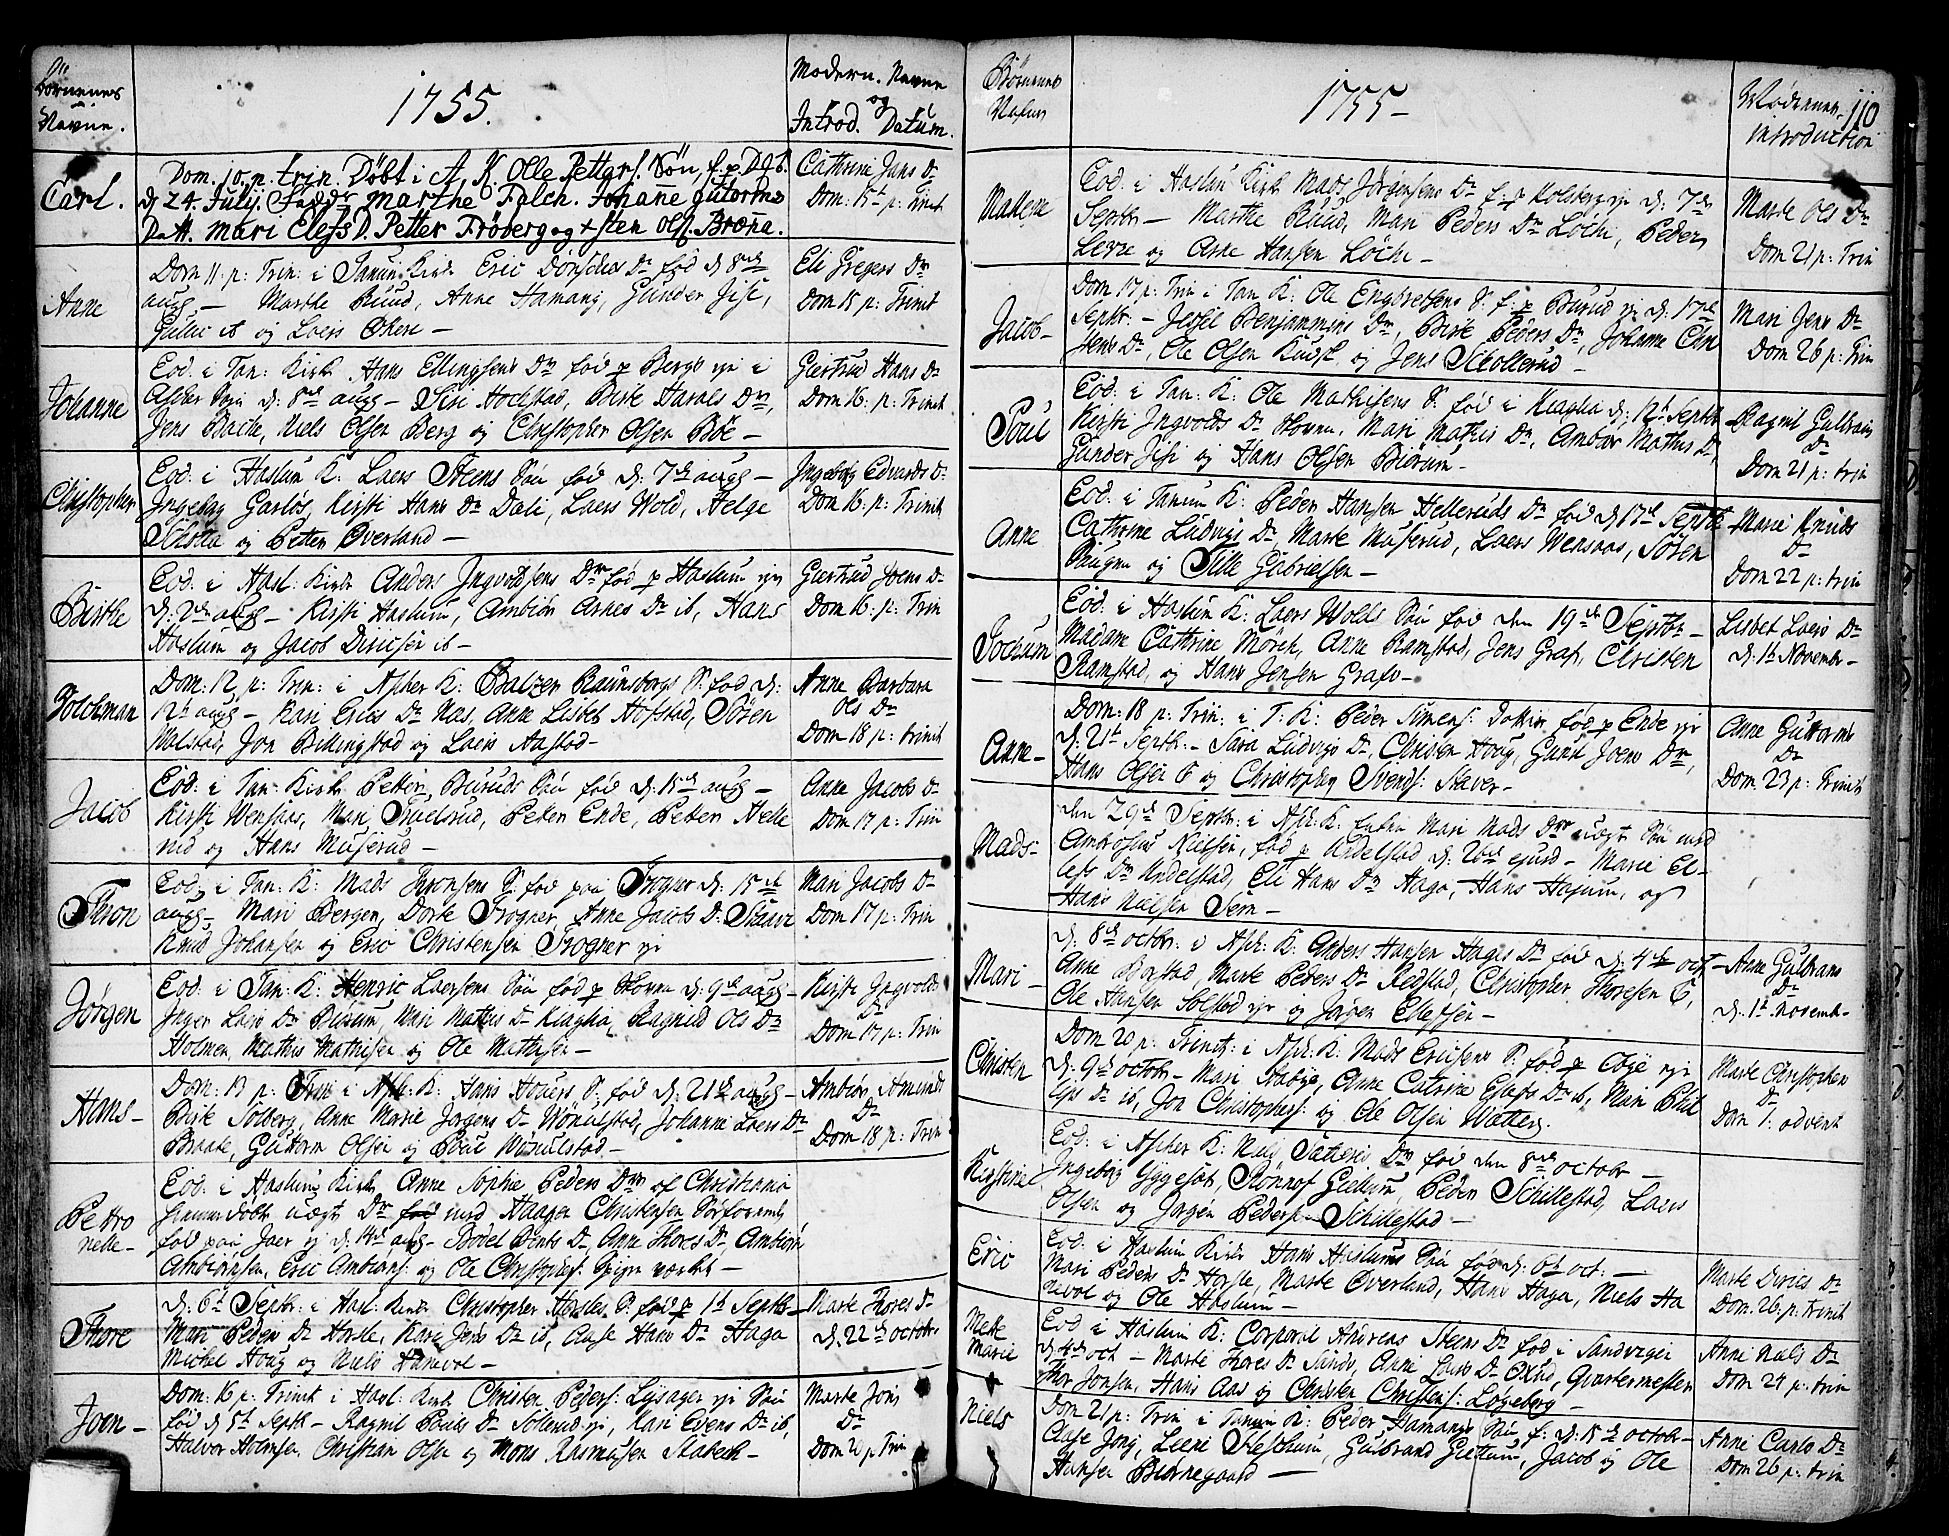 Börnenes
Navne.
1755.
Modern. Navne
og
Introd. Datum.
Carl.
Dom. 10. p. trin. Döbt i A. K. Olle Pettgrs. Sön, f. p. D.
d 24. Julij. Fadd Marthe Falch. Johanne Gutorms
Datt. Mari Elefs D. Petter Fröberg og +sten Ols. Brøna.
Cathrine Jans Dr
Dom: 15t p: Trinit
Anne
Dom 11: p: Trin: i Tanum Kirk Eric Dr fød d 8de
aug - Marthe Ruud, Anne Hamang, Gunder Jise,
Gullic ib og Laers Økere -
Eli Gregers Dr
Dom 15 p: Trinit
Johanne
Eod: i Tan: Kirk Hans Ellingsens Dr fød p Bergs eje i
Asker Sogn d: 8de aug - Siri Hochstad, Birte Harals Dr,
Jens Bache, Niels Olsen Berg og Christopher Olsen Böe -
Giertrud Hans Dr
Dom 16: p: Trinit
Christopher
Eod: i Haslum K: Laers Steens Sön fød d: 7de aug -
Ingebog Garløs, Kirsti Hans Dr Dali, Laers Wold, Helge
og Petter Øverland -
Ingeborg Edvards D:
Dom 16: p: Trinit
Birthe
Eod: i Hasl: Kirk Anders Ingvoldsens Dr fød p Haslum eje
d: 2de aug - Kirsti Haslum, Ambiør Arnes Dr ib, Hans
Haslum og Jacob Diricsen ib -
Giertrud Joens Dr
Dom 16: p: Trin
Dom: 12 p: Trin: i Asker K: Balzer Raunsborgs S: fød d:
12t aug - Kari Erics Dr Næs, Anne Lisbet Hofstad, Sören
Wolstad, Jon Billingstad og Laers Aastad -
Anne Barbara
Ols Dr
Dom 18 p: trinit
Jacob
Eod: i Tan: Kirk Petter Buruds Sön fød d: 15de aug -
Kirsti Wensaas, Mari Fruelsrud, Peter Ende, Petter Helle
rud og Hans Muserud -
Anne Jacobs Dr
Dom 17 p: Trin
Thron
Eod: i Tan: K: Mads Thronsens S: fød paa Frogner d: 15de
aug - Mari Bergen, Dorte Frogner, Anne Jacobs D:
Knud Johansen og Eric Christensen Frogner eje
Mari Jacobs Dr
Dom 17 p: Trin
Jørgen
Eod: i Tan: K: Henric Laersens Sön fød p Hovin d: 9de aug -
Inger Laers Dr Burum, Mari Mathis Dr Kiaglia, Ragnild Ols Dr
Holmen, Mathis Mathisen og Ole Mathisen -
Kirsti Ingvolds
Dr
Dom 17 p: Trin
Hans -
Dom: 13 p: Trin i Ask: K: Hans S: fød d: 21de aug -
Birte Solberg, Anne Marie Jørgens Dr Wøndlstad, Johanne Laers Dr
Braate, Guttorm Olsen og Poul Wøndlstad -
Ambiør Amunds
Dr
Dom 18 p: Trin
Petro
nelle -
Eod: i Haslum Kirk Anne Sophie Peders Dr af Christiania
uægt Dr med Haagen Christensen
fød paa Jaer ej d: 14de aug - Bodel Bents Dr, Anne Thores Dr, Ambiörn
Ambiörnsen, Eric Ambiørns: og Ole Christophs:
Thore
d: 6t Septbr: i Hasl: Kirk Christopher Horsles S: fød p 1t Septbr -
Mari Peders Dr Horsle, Kari Jens Dr ib, Aase Hans Dr Haga
Michel Houg og Niels Hanevol -
Marte Thores Dr
d: 22de octobr
Joen -
Dom: 16 p: Trinit i Hasl: Kirk Christen Peders: Lysager eje Sön
fød d 5t Septbr - Ragnil Pouls Dr Solerud eje, Kari Evens Dr ib,
Halvor Holmsen, Christian Olse og Mons Rasmusen Stabech -
Marte Jons
Dr
Dom 21 p Trin
Börnenes
Nafne
1755 -
Mødrenes
introduction
110
Mallene
Eod: i Haslum Kirk Mads Jørgensens Dr f: p Kolsberg eje d: 7de
Septbr - Marthe Ruud, Mari Peders Dr Løche, Peder
Levre og Arne Hansen Løche -
Marte Ols Dr
Dom 21 p: Trin
Jacob -
Dom 17 p: Trin i Tan K: Ole Engbretsens S: f: p Burud eje d: 17de
Septbr: - Benjammins Dr, Birte Peders Dr, Johanne Clem
Jens Dr, Ole Olsen og Jens Skollerud -
Mari Jens Dr
Dom 26 p: Trin
Poul
Eod: i Tan: K: Ole Mathisens S: fød i Kiaglia d: 12t Septbr
Kirsti Ingvolds Dr Hovin, Mari Mathis Dr, Ambør Mathis Dr,
Gunder Jisi og Hans Olsen Bierum -
Ragnil Gulbrans
Dr
Dom 21 p: trin
Anne
Eod: i Tanum K: Peder Hansen Helleruds Dr fød d 17de Septbr
Cathrine Ludvigs Dr, Marte Muserud, Laers Wensaas, Sören
Haugen og Tille Gabrielsen -
Marie Knuds
Dr
Dom 22 p: trin
Jochum
Eod: i Haslum K: Laers Wolds Sön fød den 19de Septbr -
Madame Cathrine Mörch, Anne Ramstad, Jens Graf, Christen
Ramstad, og Hans Jensen Grafs -
Lisbet Laers Dr
d: 1t Novembr -
Anne -
Dom: 18 p: Trin: i T: K: Peder Simens: Dotter fød p Ende eje
d: 21t Septbr: - Sara Ludvigs Dr, Christen Houg, Guril Joens Dr,
Hans Olsen E og Christopher Svends: Staver -
Anne Guttorms
Dr
Dom: 23 p: Trinit
Mads -
den 29de Septbr: i Ask: K: Mari Mads Dr uægt Sön med
Ambrosius Nielsen, fød p Undelstad d: 26de ejusd - Marie El-
lefs Dr Undelstad, Eli Hans Dr Haga, Hans Hajum, og
Hans Nielsen Sem -
Mari -
d: 8de octobr: i Ask: K: Anders Hansen Hages Dr fød d: 4de oct -
Anne Bogstad, Marte Peders Dr Redstad, Christopher Thoresen E,
Ole Hansen Solstad eje og Jørgen Ellefsen -
Anne Gulbrans
Dr
d: 1t Novemb -
Christen
Dom 20 p: Trinit: i Ask: K: Mads Ericsens S: fød p eje
d: 9de octobr - Mari Aabye, Anne Catrine Elefs Dr ib, Mari Phil
lips Dr ib, Jon Christophers: og Ole Olsen Watters.
Marte Christophers
Dr
Dom 1: advent
Kirstine
Eod: i Asker K: Dr fød den 8de octobr -
Ingeborg Yggesøt, Rønnof Giettum, Peder Schillestad, Laers
Olsen og Jørgen Peders: Schillestad -
Eric
Eod: i Haslum Kirk Hans Haslums Sön fød d: 6t oct: -
Mari Peders Dr Horsle, Marte Øverland, Hans Haga, Niels Ha
nevol og Ole Haslum -
Marte Dirics Dr
Dom: 26. p: Trinit
Mette
Marie
Eod i Haslum K: Corporal Andreas Steens Dr fød i Sandvigen
oct - Marte Thores Dr Sandv, Anne Laers Dr, Qvartermester
Thor Jonsen, Hans Aas og Christen Christens: Løgeberg -
Anne Niels Dr
Dom 24 p: trin
Niels
Dom 21 p: Trin i Tanum K: Peder Hamangs Sön f: d: 15de octobr -
Aase Jong, Gulbrand Giettum, Jacob og Ole
Hansen Biørnegaard -
Anne Carls Dr
Dom 26 p: trin